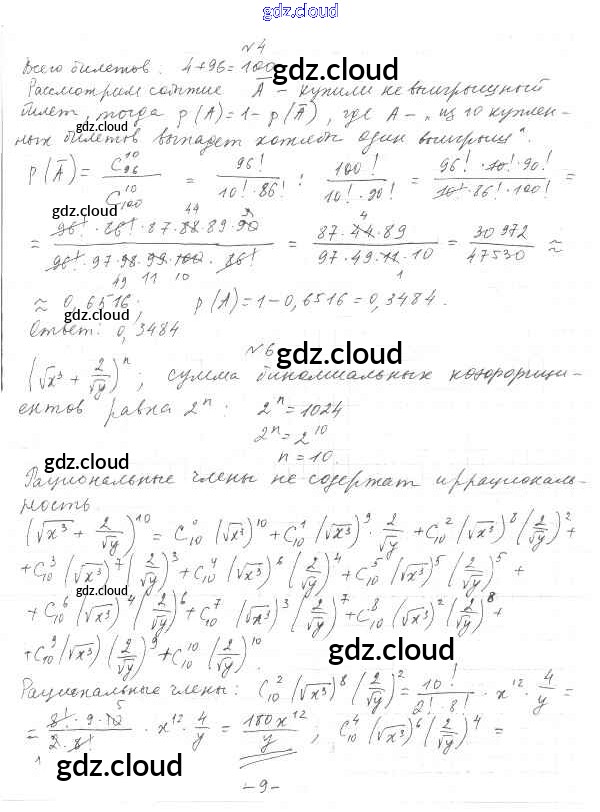 gdz.cloud
№4
Всего билетов: 4+96=100
Рассмотрим событие A̅ - купили не выигрышный
билет, тогда p(A)=1-p(A̅), где A - "из 10 куплен-
ных билетов выпадет хотябы один выигрыш".
gdz.cloud
gdz.cloud
p(A̅) = C₉₆¹⁰ / C₁₀₀¹⁰ = 96! / (10!·86!) : 100! / (10!·90!) = (96!·10!·90!) / (10!·86!·100!) =
gdz.cloud
= (96!·86!·87·88·89·90) / (96!·97·98·99·100·86!) = (87·44·89) / (97·49·11·10) = 30972 / 47530 ≈
≈ 0,6516; p(A)=1-0,6516=0,3484.
gdz.cloud
Ответ: 0,3484
№6
gdz.cloud
(√x³ + 2/√y)ⁿ; сумма биномиальных коэффици-
ентов равна 2ⁿ: 2ⁿ=1024
2ⁿ=2¹⁰
n=10.
gdz.cloud
gdz.cloud
Рациональные члены не содержат иррациональ-
ность.
(√x³ + 2/√y)¹⁰ = C₁₀⁰(√x³)¹⁰ + C₁₀¹(√x³)⁹·2/√y + C₁₀²(√x³)⁸(2/√y)² +
+C₁₀³(√x³)⁷(2/√y)³ + C₁₀⁴(√x³)⁶(2/√y)⁴ + C₁₀⁵(√x³)⁵(2/√y)⁵ +
+ C₁₀⁶(√x³)⁴(2/√y)⁶ + C₁₀⁷(√x³)³(2/√y)⁷ + C₁₀⁸(√x³)²(2/√y)⁸ +
+C₁₀⁹(√x³)(2/√y)⁹ + C₁₀¹⁰(2/√y)¹⁰.
gdz.cloud
gdz.cloud
Рациональные члены: C₁₀²(√x³)⁸(2/√y)² = 10! / (2!·8!) · x¹²·4/y =
= (8!·9·10) / (2·8!) · x¹²·4/y = 180x¹²/y; C₁₀⁴(√x³)⁶(2/√y)⁴ =
gdz.cloud
gdz.cloud
-9-